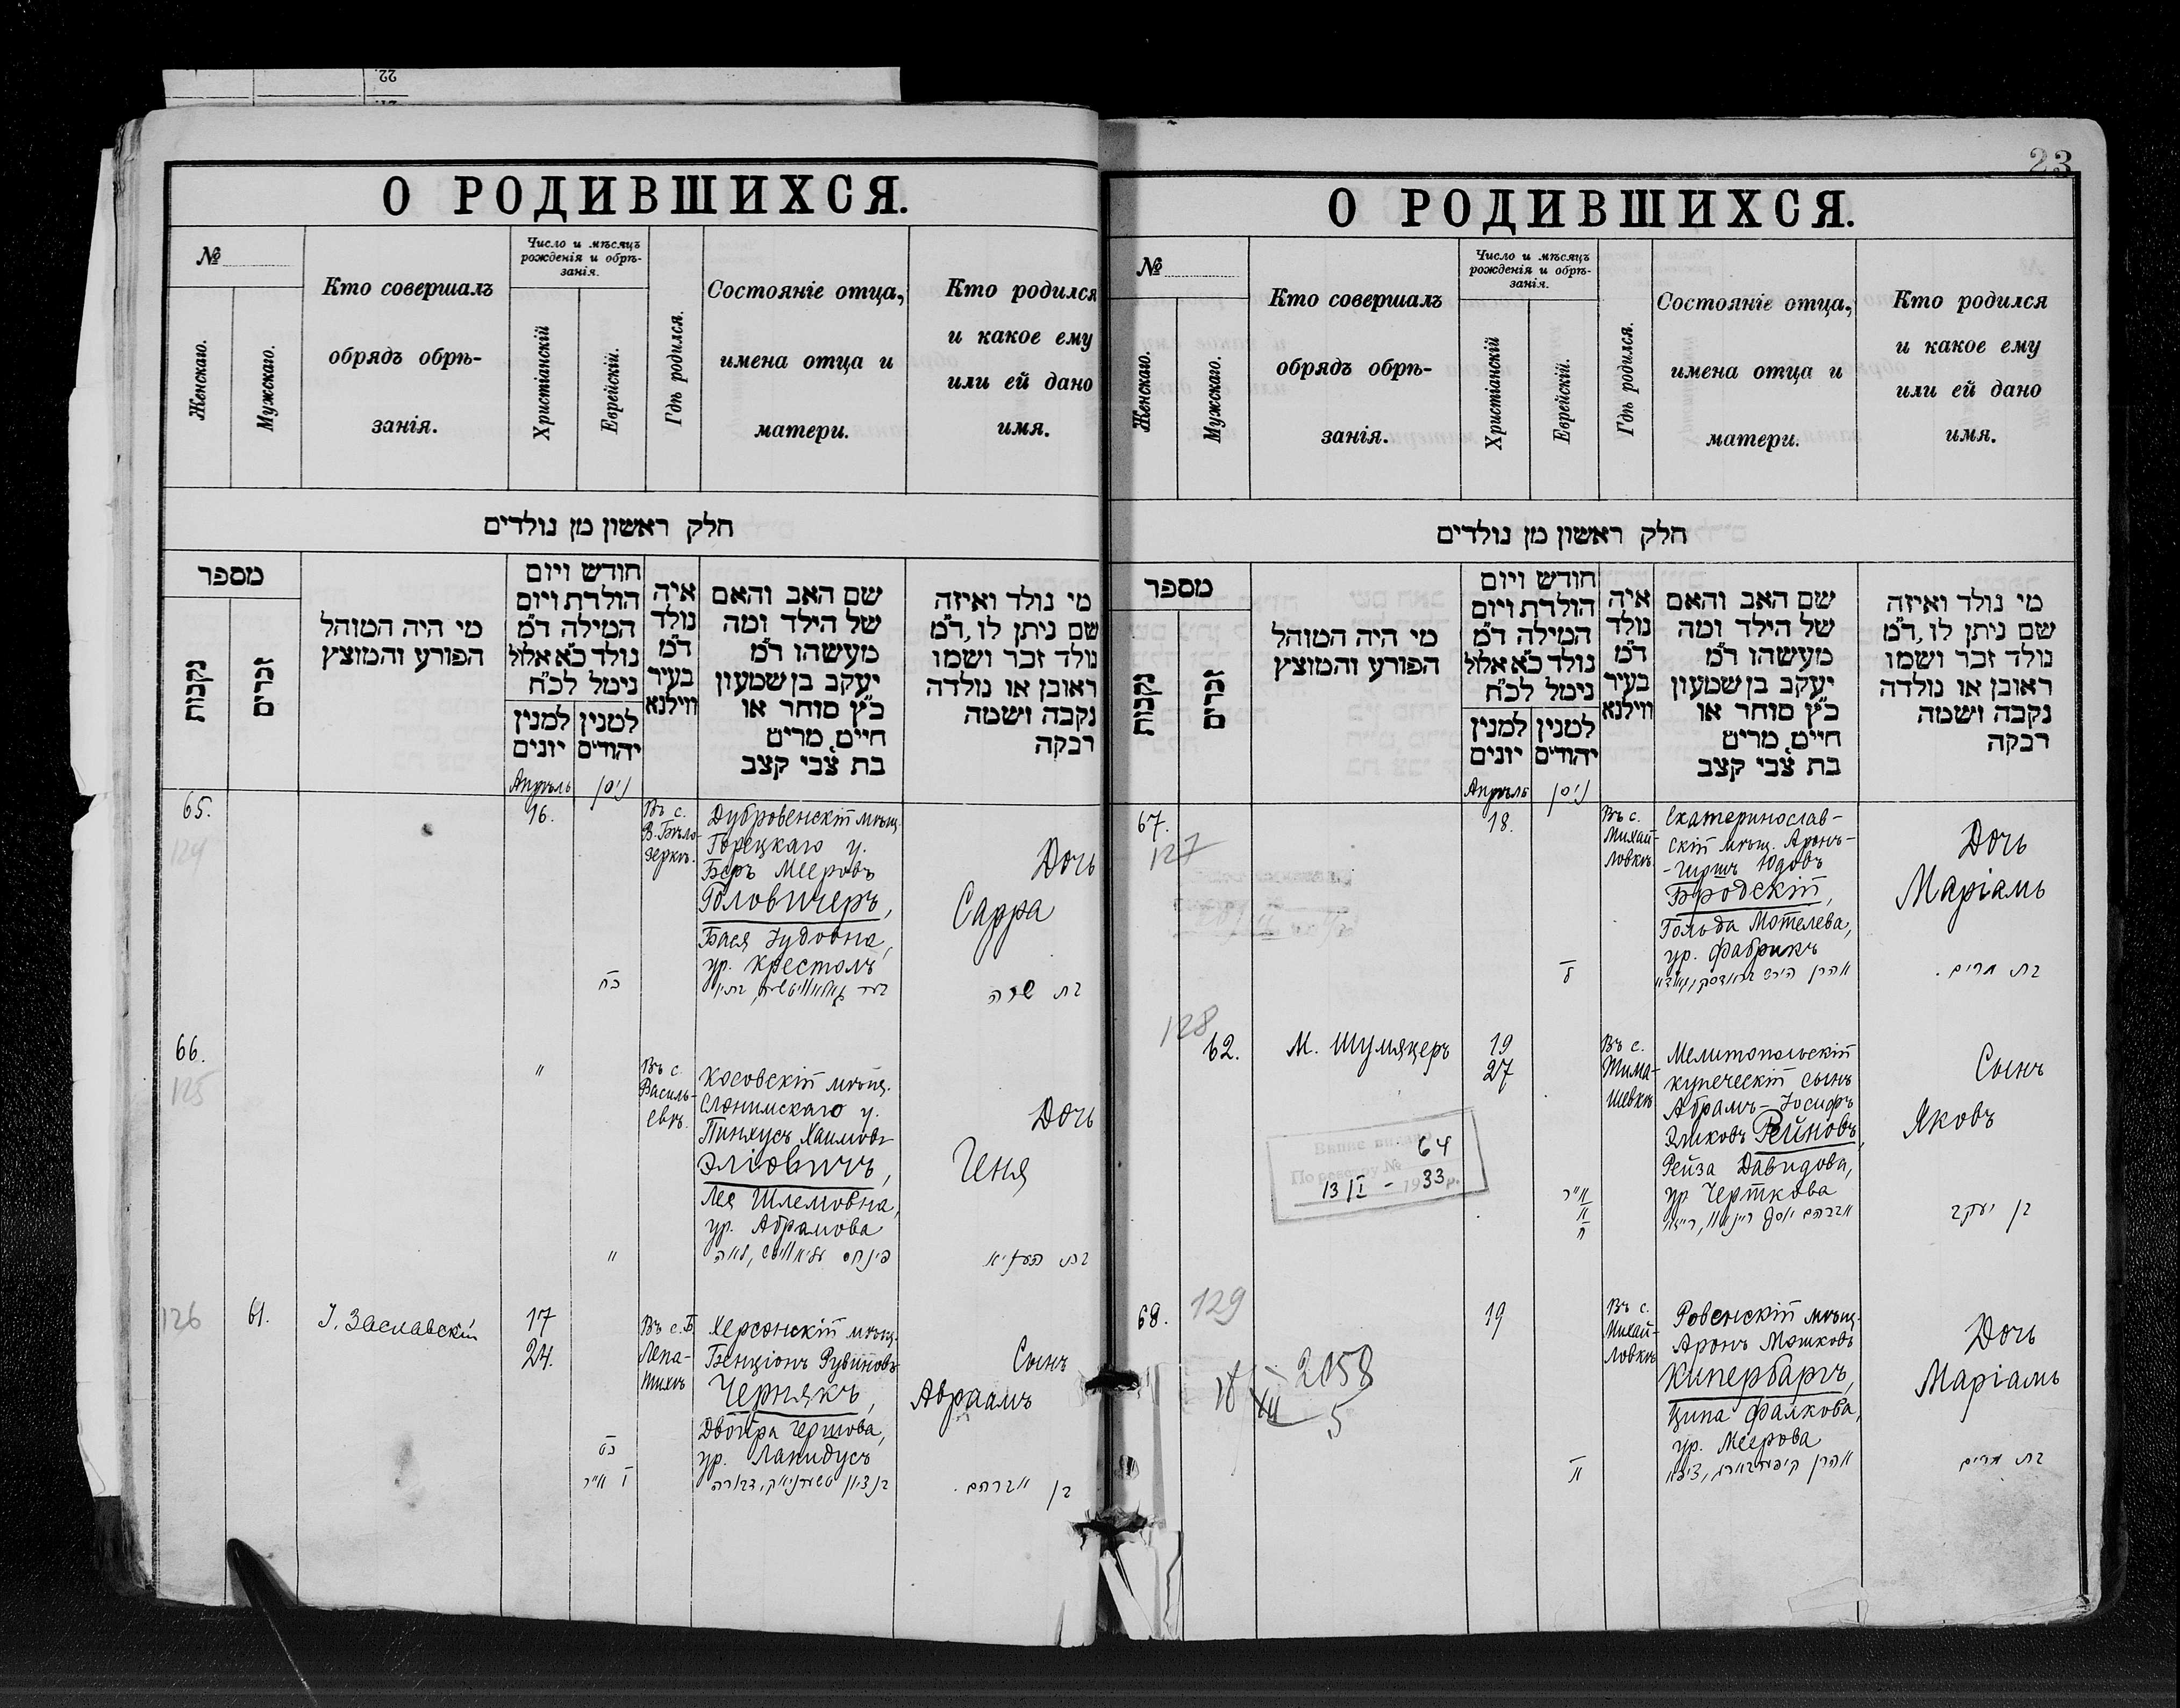 22.
О РОДИВШИХСЯ.
№
Женскаго.
Мужскаго.
Кто совершалъ
обрядъ обрѣ-
занія.
Число и мѣсяцъ
рожденія и обрѣ-
занія.
Христіанскій
Еврейскій.
Гдѣ родился.
Состояніе отца,
имена отца и
матери.
Кто родился
и какое ему
или ей дано
имя.
חלק ראשון מן נולדים
מספר
נקבות
זכרים
מי היה המוהל
הפורע והמוצץ
חודש ויום
הולדת ויום
המילה ד"מ
נולד כ"א אלול
נימל לכ"ח
למנין יהודים
למנין יונים
איה
נולד
ד"מ
בעיר
ווילנא
שם האב והאם
של הילד ומה
מעשהו ד"מ
יעקב בן שמעון
כ"ץ סוחר או
חיים, מרים
בת צבי קצב
מי נולד ואיזה
שם ניתן לו, ד"מ
נולד זכר ושמו
ראובן או נולדה
נקבה ושמה
רבקה
Апрѣль
ניסן
65.
124
16.
כח
Въ с.
В. Бѣло-
зеркѣ.
Дубровенскій мѣщ.
Горецкаго у.
Беръ Мееровъ
Головичеръ,
Бася Іудовна,
ур. Крестолъ
Дочь
Сарра
בת שרה
66.
125
"
"
Въ с.
Василь-
евкѣ.
Косовскій мѣщ.
Слонимскаго у.
Пинхусъ Хаимовъ
Эліовичъ,
Лея Шлемовна,
ур. Абрамова
Дочь
Геня
בת העניא
126
61.
І. Заславскій
17
24.
כט
ו אייר
Въ с. Б
Лепа-
тихѣ
Херсонскій мѣщ.
Бенціонъ Рувиновъ
Чернякъ,
Двойра Гершова,
ур. Лапидусъ
בן ציון טשערניאק, דבורה
Сынъ
Авраамъ
בן אברהם.
23
О РОДИВШИХСЯ.
№
Женскаго.
Мужскаго.
Кто совершалъ
обрядъ обрѣ-
занія.
Число и мѣсяцъ
рожденія и обрѣ-
занія.
Христіанскій
Еврейскій.
Гдѣ родился.
Состояніе отца,
имена отца и
матери.
Кто родился
и какое ему
или ей дано
имя.
חלק ראשון מן נולדים
מספר
נקבות
זכרים
מי היה המוהל
הפורע והמוצץ
חודש ויום
הולדת ויום
המילה ד"מ
נולד כ"א אלול
נימל לכ"ח
למנין יהודים
למנין יונים
איה
נולד
ד"מ
בעיר
ווילנא
שם האב והאם
של הילד ומה
מעשהו ד"מ
יעקב בן שמעון
כ"ץ סוחר או
חיים, מרים
בת צבי קצב
מי נולד ואיזה
שם ניתן לו, ד"מ
נולד זכר ושמו
ראובן או נולדה
נקבה ושמה
רבקה
Апрѣль
ניסן
67.
127
18.
Въ с.
Михай-
ловкѣ
Екатеринослав-
скій мѣщ. Аронъ-
-Гиршъ Юдовъ
Бродскій,
Гольда Мотелева,
ур. Фабрикъ
Дочь
Маріамъ
בת מרים.
128
62.
М. Шумяцеръ
19
27
אייר
א
ח
Въ с.
Тима-
шевкѣ
Мелитопольскій
купеческій сынъ
Абрамъ-Іосифъ
Эликовъ Рейновъ,
Рейза Давидова,
ур. Черткова
Сынъ
Яковъ
בן יעקב
64
13/I - 1933 р.
68.
129
19
א
Въ с.
Михай-
ловкѣ
Ровенскій мѣщ.
Аронъ Мошковъ
Кипербаргъ,
Ципа Фалкова,
ур. Меерова
אהרן קיפערבארג, ציפא
Дочь
Маріамъ
בת מרים
2058
5